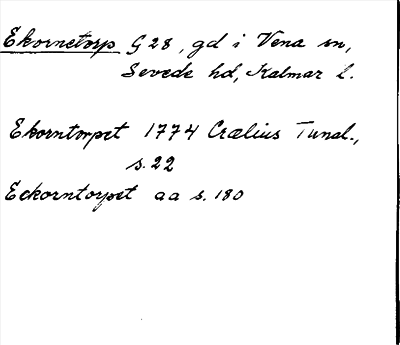 Ekornetorp G 28, gd i Vena sn,
Sevede hd, Kalmar l.
Ekorntorpet 1774 Crælius Tunal.,
s. 22
Eckorntorpet aa s. 180